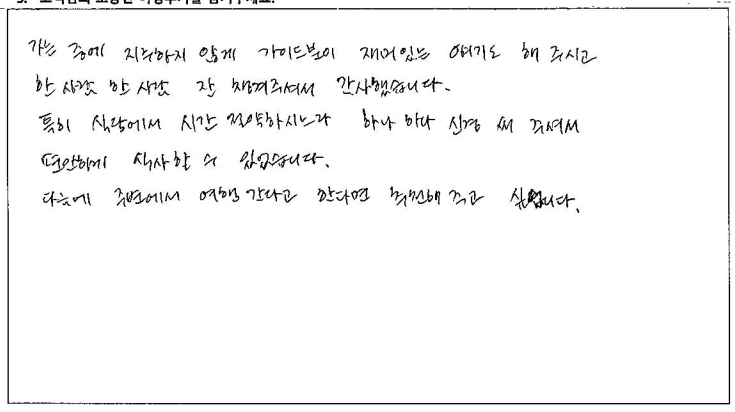 가는 중에 지루하지 않게 가이드분이 재미있는 얘기도 해 주시고
한 사람 한 사람 잘 챙겨주셔서 감사했습니다.
특히 식당에서 시간 절약하시느라 하나 하나 신경 써 주셔서
편안하게 식사할 수 있었습니다.
다음에 주변에서 여행 간다고 한다면 추천해 주고 싶습니다.